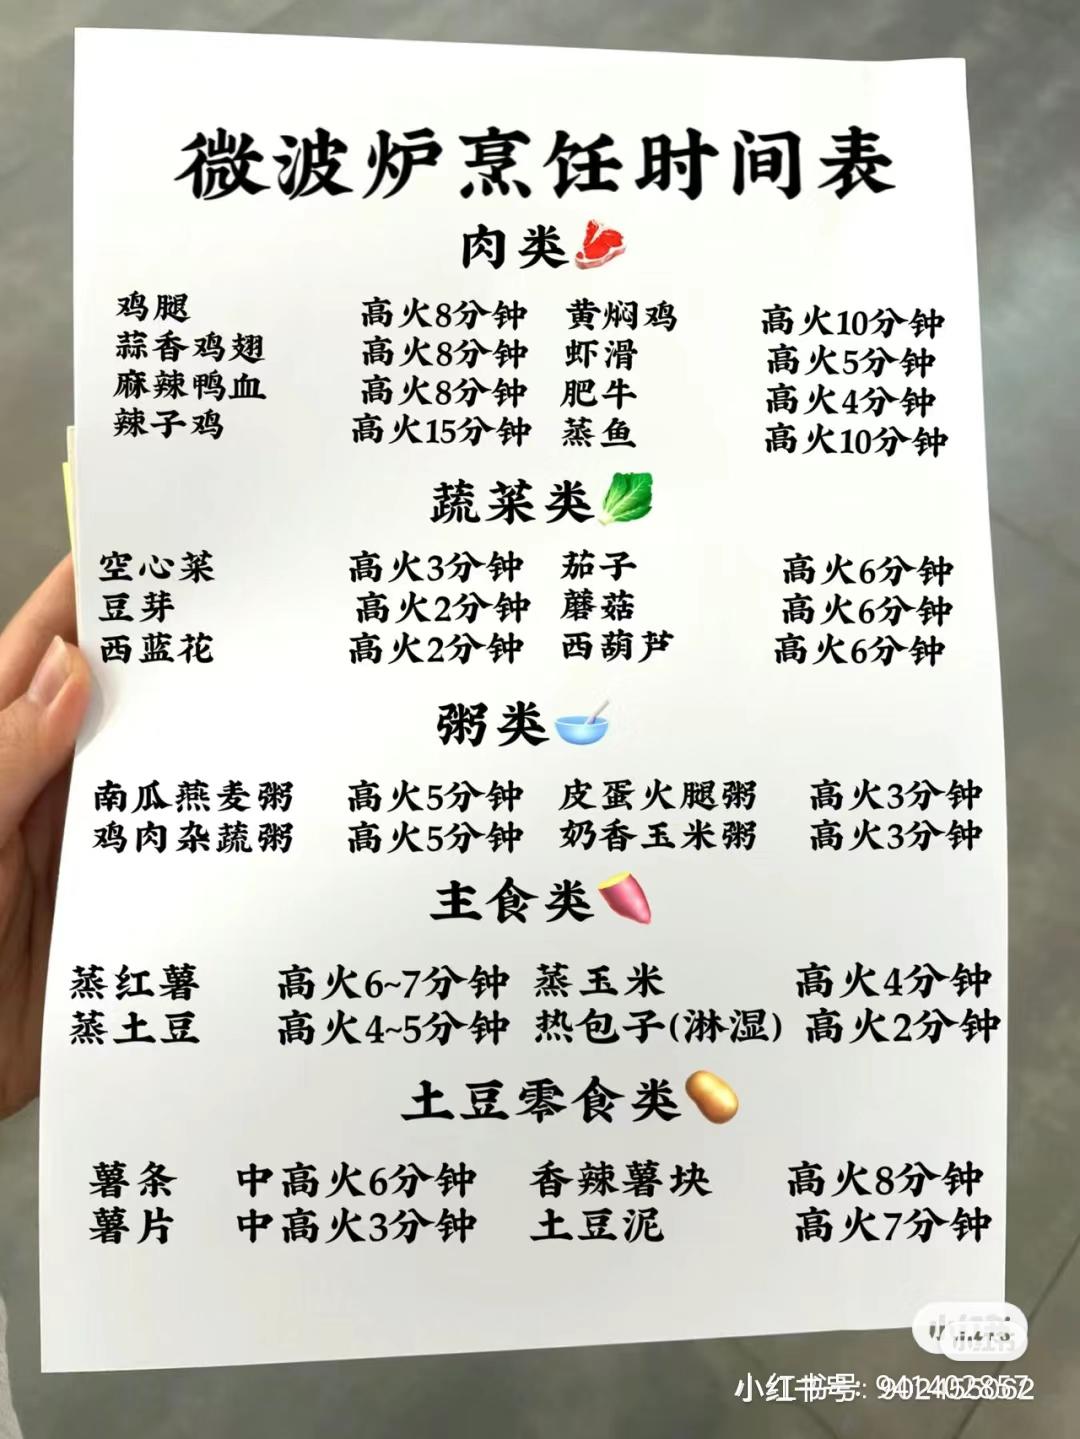 微波炉烹饪时间表
肉类
鸡腿 高火8分钟 黄焖鸡 高火10分钟
蒜香鸡翅 高火8分钟 虾滑 高火5分钟
麻辣鸭血 高火8分钟 肥牛 高火4分钟
辣子鸡 高火15分钟 蒸鱼 高火10分钟
蔬菜类
空心菜 高火3分钟 茄子 高火6分钟
豆芽 高火2分钟 蘑菇 高火6分钟
西蓝花 高火2分钟 西葫芦 高火6分钟
粥类
南瓜燕麦粥 高火5分钟 皮蛋火腿粥 高火3分钟
鸡肉杂蔬粥 高火5分钟 奶香玉米粥 高火3分钟
主食类
蒸红薯 高火6~7分钟 蒸玉米 高火4分钟
蒸土豆 高火4~5分钟 热包子(淋湿) 高火2分钟
土豆零食类
薯条 中高火6分钟 香辣薯块 高火8分钟
薯片 中高火3分钟 土豆泥 高火7分钟
小红书
小红书号: